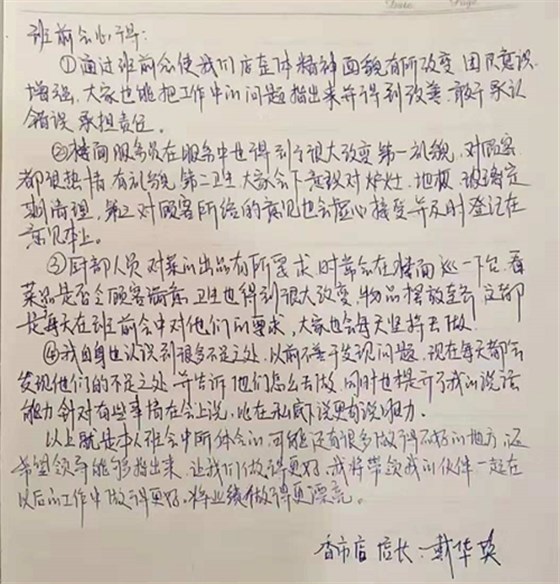 班前会心得:
①通过班前会使我们店整体精神面貌有所改变 团队意识
增强,大家也能把工作中的问题指出来并得到改善,敢于承认
错误 承担责任。
②楼面服务员在服务中也得到了很大改变 第一礼貌,对顾客
都很热情 有礼貌,第二卫生 大家会下意识对炉灶、地板、玻璃定
期清理,第三对顾客所给的意见也会虚心接受并及时登记在
意见本上。
③厨部人员对菜的出品有所要求,时常会在楼面巡一下台,看
菜品是否令顾客满意 卫生也得到很大改变,物品摆放
是每天在班前会中对他们的要求,大家也会每天坚持去做。
④我自身也认识到很多不足之处,以前不善于发现问题,现在每天都会
发现他们的不足之处 并告诉他们怎么去做,同时也提升了我的说话
能力 针对有些事情在会上说,比在私底下说更有说服力。
以上就是本人班会中所体会的,可能还有很多做得不好的地方,还
希望领导能够指出来,让我们做得更好,我将带领我的伙伴一起在
以后的工作中做得更好,将业绩做得更漂亮。
香市店 店长:戴华英